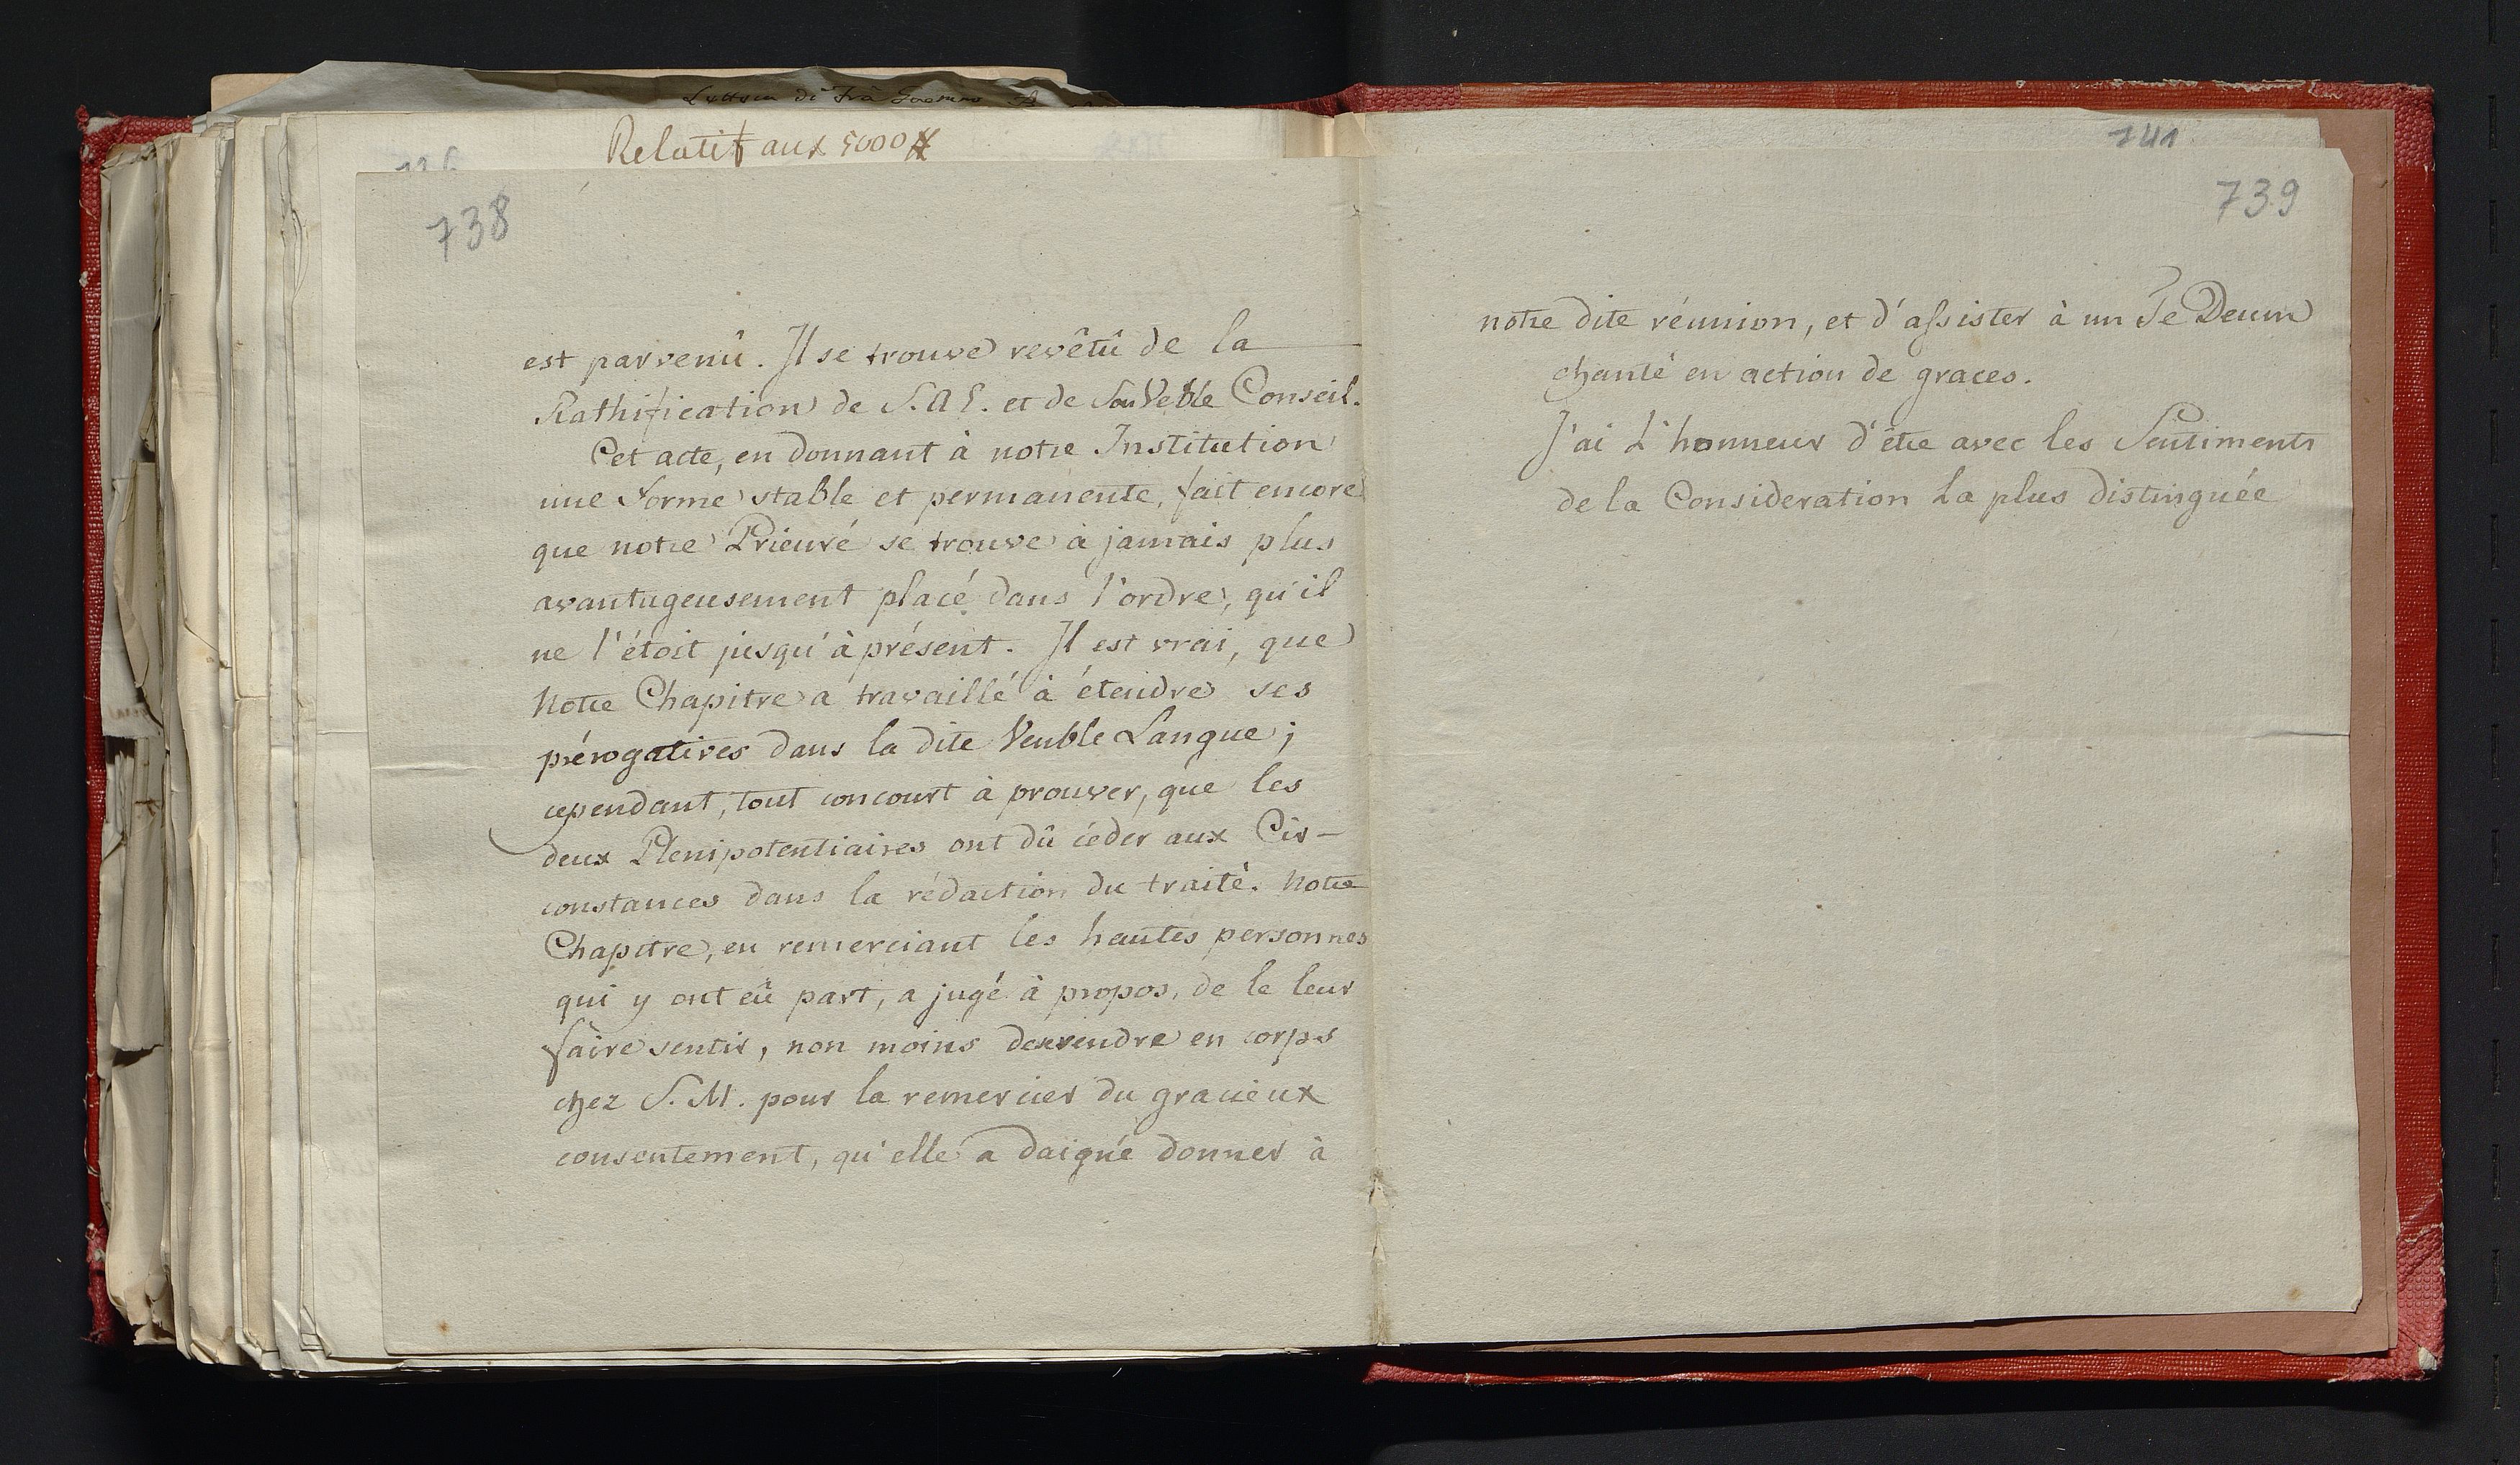 Relatif aux 5000
738
est parvenû. Il se trouve revêtû de la
Rathification de S.A E. et de Son Veble Conseil.
Cet acte, en donnant à notre Institution
une Forme stable et permanente, fait encore
que notre Prieuré se trouve à jamais plus
avantugeusement placé dans l'ordre, qu'il
ne l'étoit jusqu'à présent. Il est vrai, que
Notre Chapitre a travaillé à étendre ses
prérogatives dans la dite Venble Langue;
cependant, tout concourt à prouver, que les
deux Plenipotentiaires ont dû céder aux Cir-
constances dans la rédaction du traité. Notre
Chapitre, en remerciant les hautes personnes
qui y ont eû part, a jugé à propos, de le leur
faire sentir, non moins de rendre en corps
chez S. M. pour la remercier du gracieux
consentement, qu'elle a daigné donner à
741
739
notre dite réunion, et d'assister à un Te Deum
chanté en action de graces.
J'ai L'honneur d'être avec les Sentiments
de la Consideration La plus distinguée